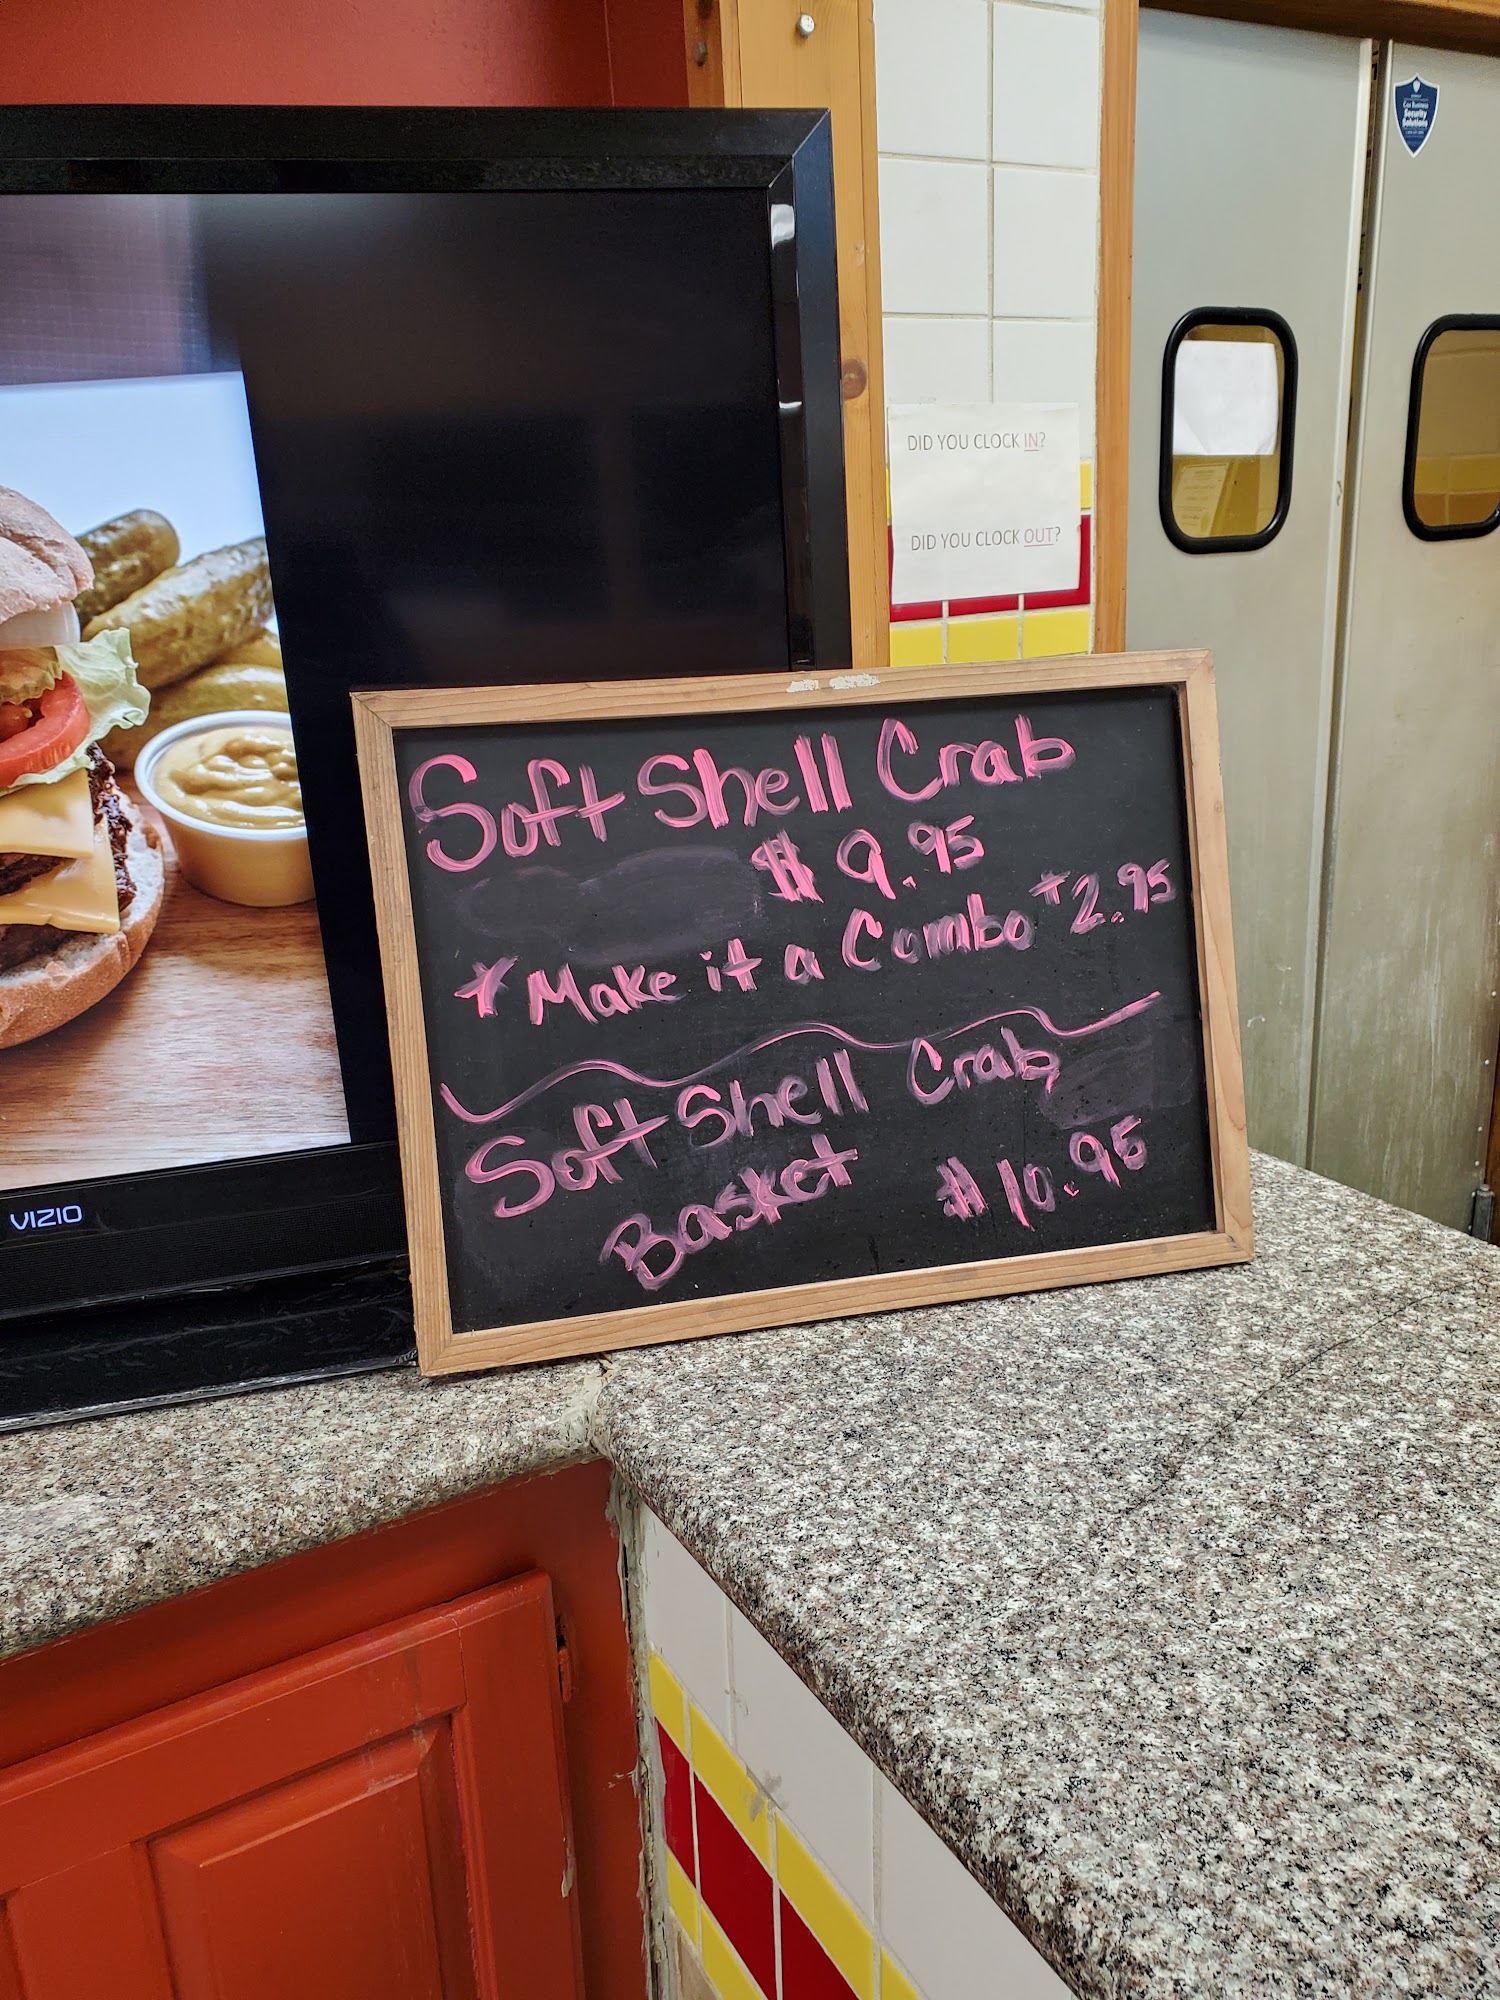 Cox Business
Security
Solutions
DID YOU CLOCK IN?
DID YOU CLOCK OUT?
Soft Shell Crab
$ 9.95
* Make it a Combo +2.95
Soft Shell Crab
Basket $10.95
VIZIO